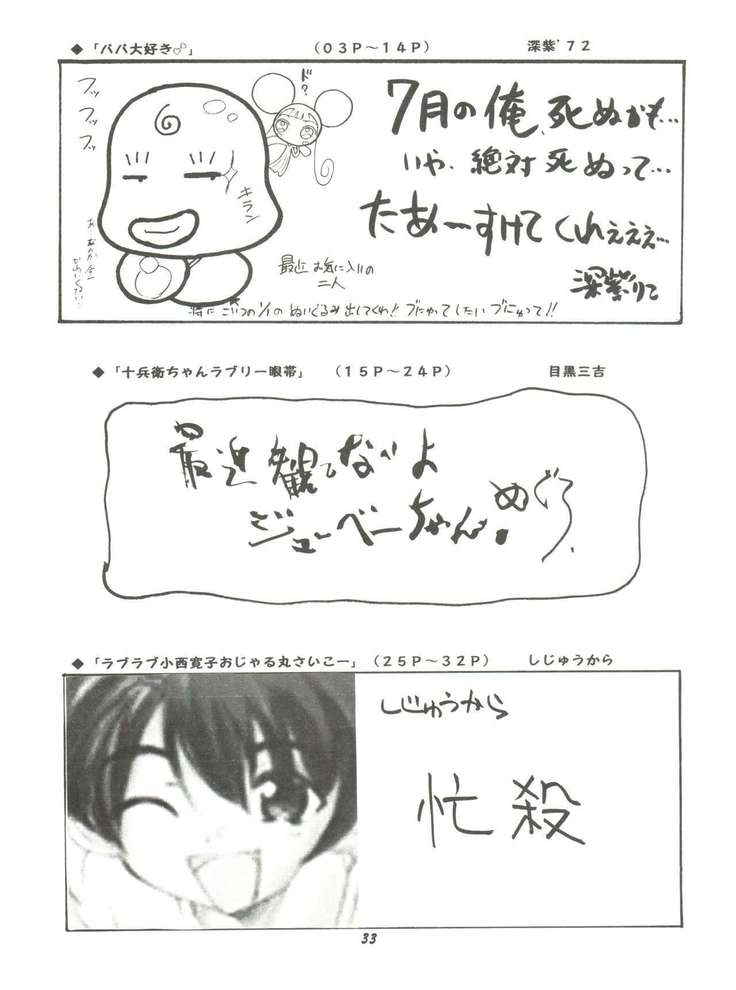 ◆「パパ大好き♂」 (03P～14P) 深紫'72
フッ
フッ
フッ
ド?
キラン
7月の俺、死ぬかも…
いや、絶対死ぬって…
たあ～すけてくれぇぇぇ…
深紫りこ
最近お気に入りの
二人
特にこいつの1/1のぬいぐるみ出してくれ!!
◆「十兵衛ちゃんラブリー眼帯」 (15P～24P) 目黒三吉
最近観てないよ
ジューベーちゃん。めぐろ
◆「ラブラブ小西寛子おじゃる丸さいこー」(25P～32P) しじゅうから
しじゅうから
忙殺
33